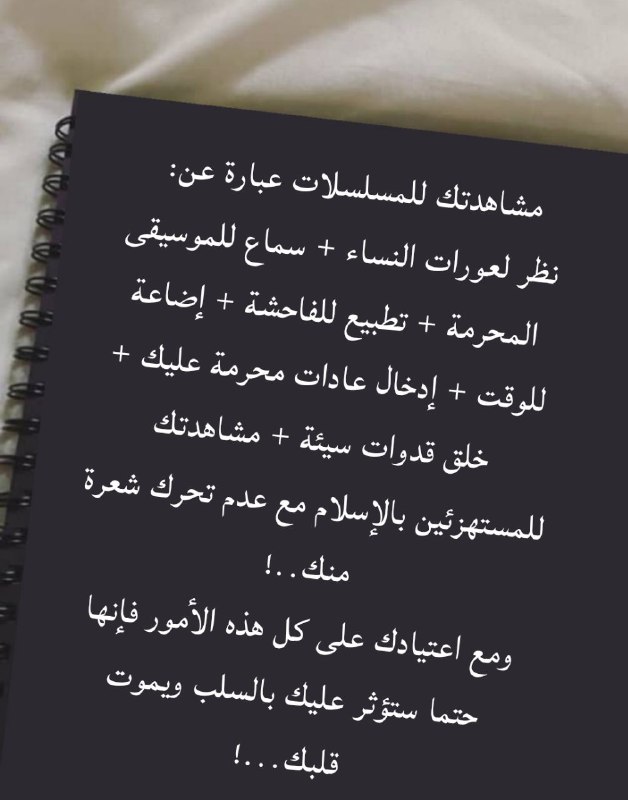 مشاهدتك للمسلسلات عبارة عن:
نظر لعورات النساء + سماع للموسيقى
المحرمة + تطبيع للفاحشة + إضاعة
للوقت + إدخال عادات محرمة عليك +
خلق قدوات سيئة + مشاهدتك
للمستهزئين بالإسلام مع عدم تحرك شعرة
منك..!
ومع اعتيادك على كل هذه الأمور فإنها
حتما ستؤثر عليك بالسلب ويموت
قلبك...!